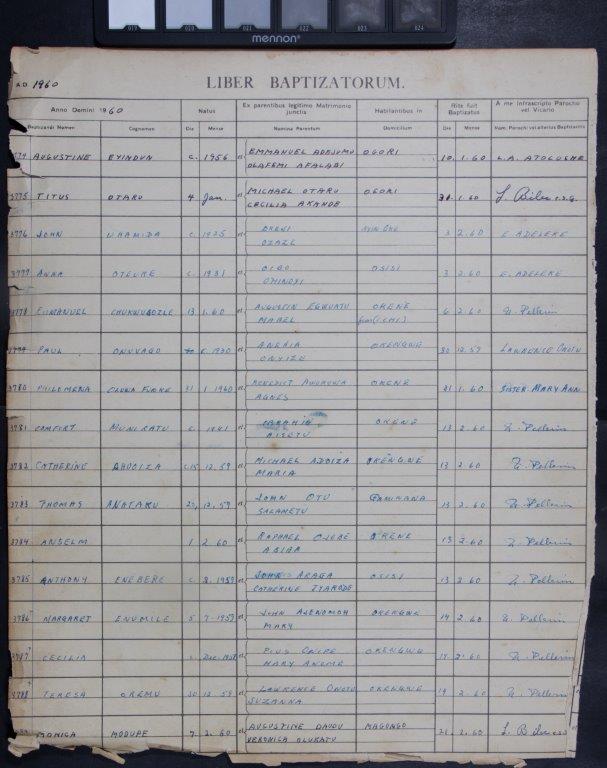 019 020 021 022 023 024
mennon
A.D. 1960 LIBER BAPTIZATORUM.
Anno Domini 1960 Natus Ex parentibus legitimo Matrimonio junctis Habitantibus in Rite fuit Baptizatus A me infrascripto Parocho vel Vicario
Baptizandi Nomen Cognomen Die Mense Nomina Parentum Domicilium Die Mense Nom. Parochi vel alterius Baptizantis
AUGUSTINE EYINDUN C. 1956 et EMMANUEL ADEJUMO OGORI 10. 1. 60 L.A.
OLAFEMI AFALABI
3775 TITUS OTARU 4 Jan. et MICHAEL OTARU OGORI 31. 1. 60
CECILIA AKANDE
3776 JOHN UHAMIDA C. 1925 et 3 2. 60 E. ADELEKE
OZAZE
3777 ANNA OTEUKE C. 1931 et OSISI 3 2. 60 E. ADELEKE
OMINOYI
3778 EMMANUEL CHUKWUGOZLE 13 1. 60 et AUGUSTIN EGWUATU OKENE 6 2. 60 Z. Pellerin
MABEL
PAUL ONUVAGO C. 1930 et ANEAIA OKENGWE 30 12. 59 LAWRENCE ONOTU
ONYIZE
3780 PHILOMENA OLUWA FUNKE 31 1 1960 et BENEDICT AWOROWA OKENE 31 1. 60 SISTER MARY ANN
AGNES
3781 COMFORT MUNIRATU C. 1941 et IBRAHIM OKENE 13 2. 60 Z. Pellerin
AISETU
3782 CATHERINE AHUOIZA C. 15 12. 59 et MICHAEL ADOIZA OKENGWE 13 2. 60 Z. Pellerin
MARIA
3783 THOMAS ANATAKU 25, 12. 59 et JOHN OTU 13 2. 60 Z. Pellerin
SALAMETU
3784 ANSELM 1 2 60 et RAPHAEL OJOBE OKENE 13 2. 60 Z. Pellerin
ASIBA
3785 ANTHONY ENEBERE C. 8. 1959 et JOHN ARAGA OSISI 13 2. 60 Z. Pellerin
CATHERINE
3786 MARGARET ENUMILE 5 7. 1959 et JOHN AJENOMOH OKENGWE 14 2. 60 Z. Pellerin
MARY
3787 CECILIA C. Dec. 1958 et PIUS ONIPE OKENGWE 14 2. 60 Z. Pellerin
MARY ANEME
3788 TERESA OREMU 30 12. 59 et LAWRENCE ONOTU OKENGWE 19 2. 60 Z. Pellerin
SUZANNA
MONICA MODUPE 7. 2. 60 et AUGUSTINE DAUDU MAGONGO 21. 2. 60
VERONICA OLUKATU